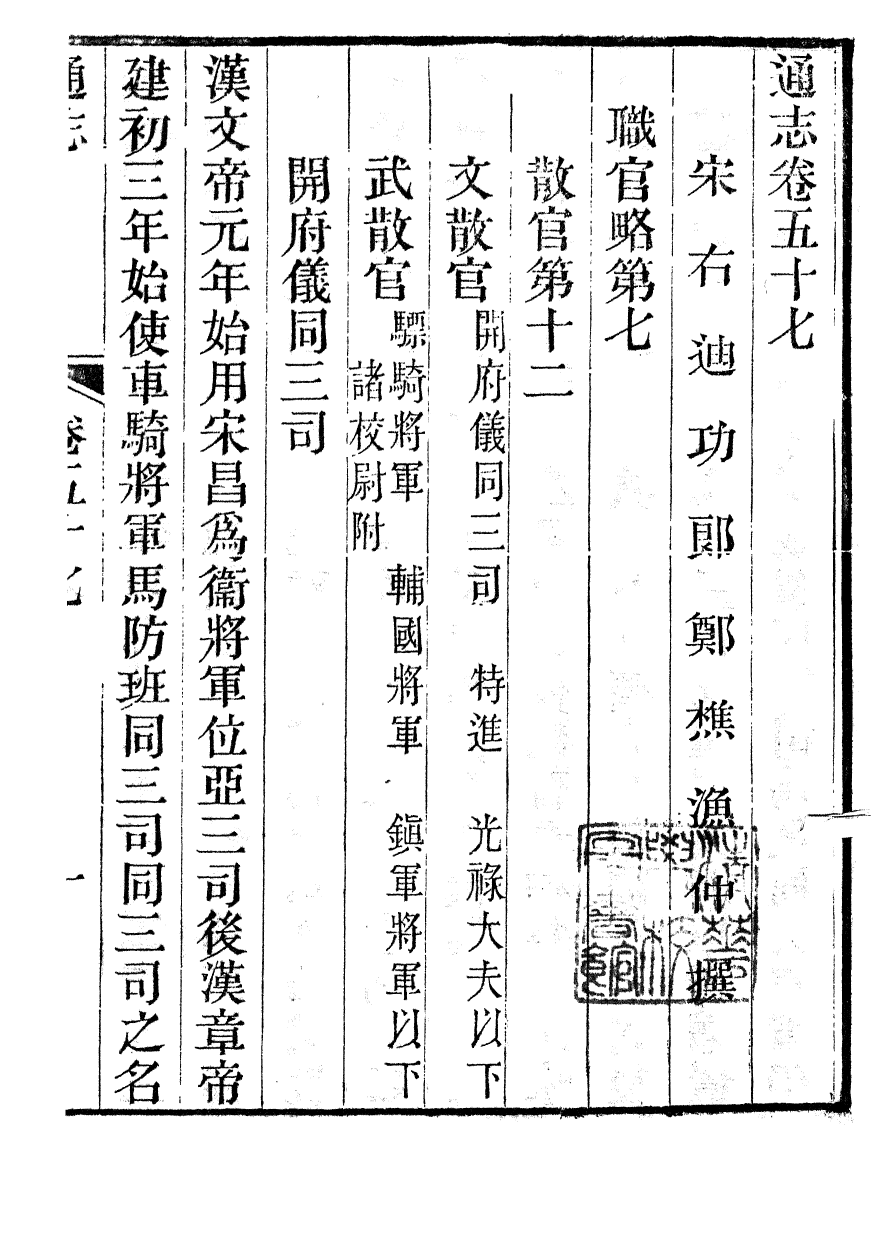 通志卷五十七
宋右迪功郎鄭樵漁仲撰
職官略第七
散官第十二
文散官 開府儀同三司 特進 光祿大夫以下
武散官 驃騎將軍 輔國將軍 鎮軍將軍以下
諸校尉附
開府儀同三司
漢文帝元年始用宋昌爲衞將軍位亞三司後漢章帝
建初三年始使車騎將軍馬防班同三司同三司之名
通志 卷五十七 一